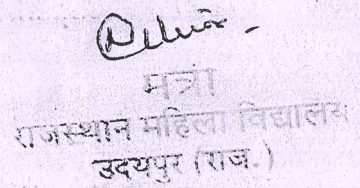 मंत्री
राजस्थान महिला विद्यालय
उदयपुर (राज.)